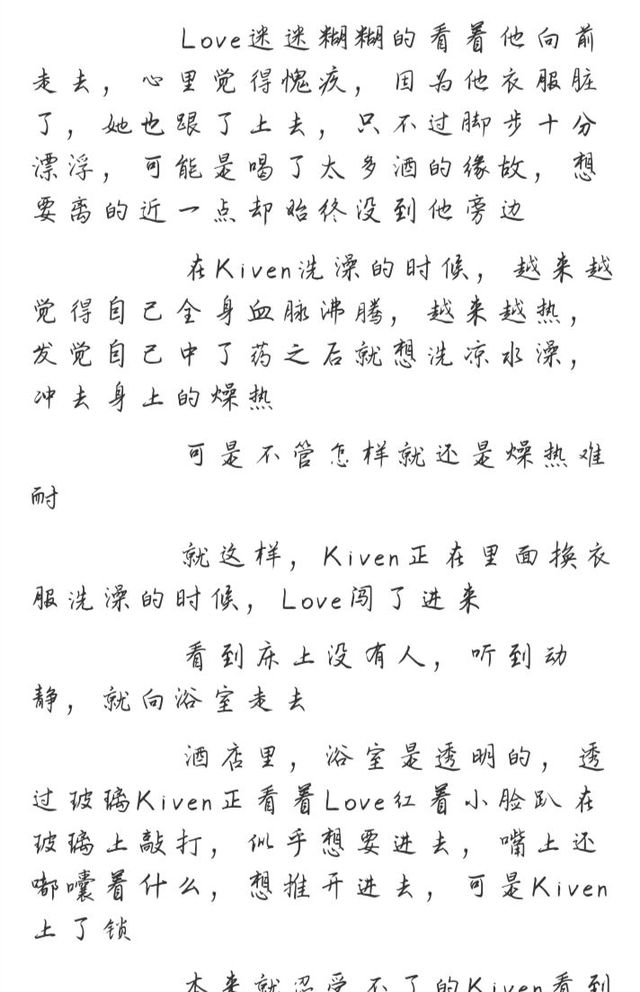 Love迷迷糊糊的看着他向前
走去，心里觉得愧疚，因为他衣服脏
了，她也跟了上去，只不过脚步十分
漂浮，可能是喝了太多酒的缘故，想
要离的近一点却始终没到他旁边
在Kiven洗澡的时候，越来越
觉得自己全身血脉沸腾，越来越热，
发觉自己中了药之后就想洗凉水澡，
冲去身上的燥热
可是不管怎样就还是燥热难
耐
就这样，Kiven正在里面换衣
服洗澡的时候，Love闯了进来
看到床上没有人，听到动
静，就向浴室走去
酒店里，浴室是透明的，透
过玻璃Kiven正看着Love红着小脸趴在
玻璃上敲打，似乎想要进去，嘴上还
嘟囔着什么，想推开进去，可是Kiven
上了锁
本来就忍受不了的Kiven看到